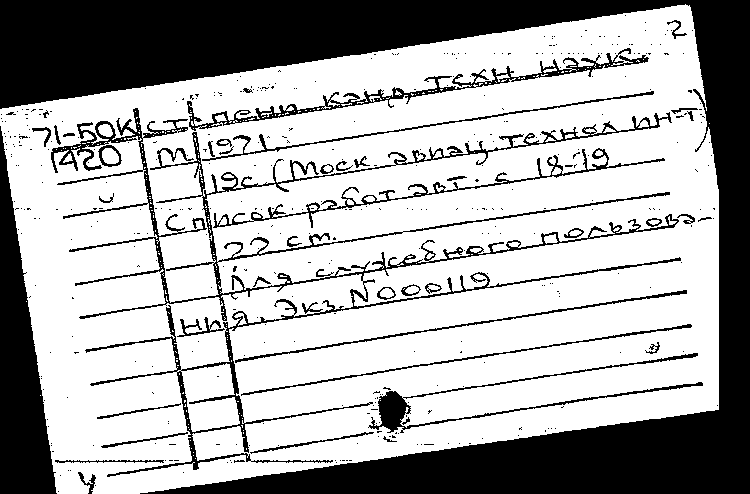 2
71-БОК степени канд техн наук
1420 М, 1971.
19с (Моск авиац технол ин-т)
Список работ авт. с 18-19.
22 см.
Для служебного пользова-
ния. Экз. N000119.